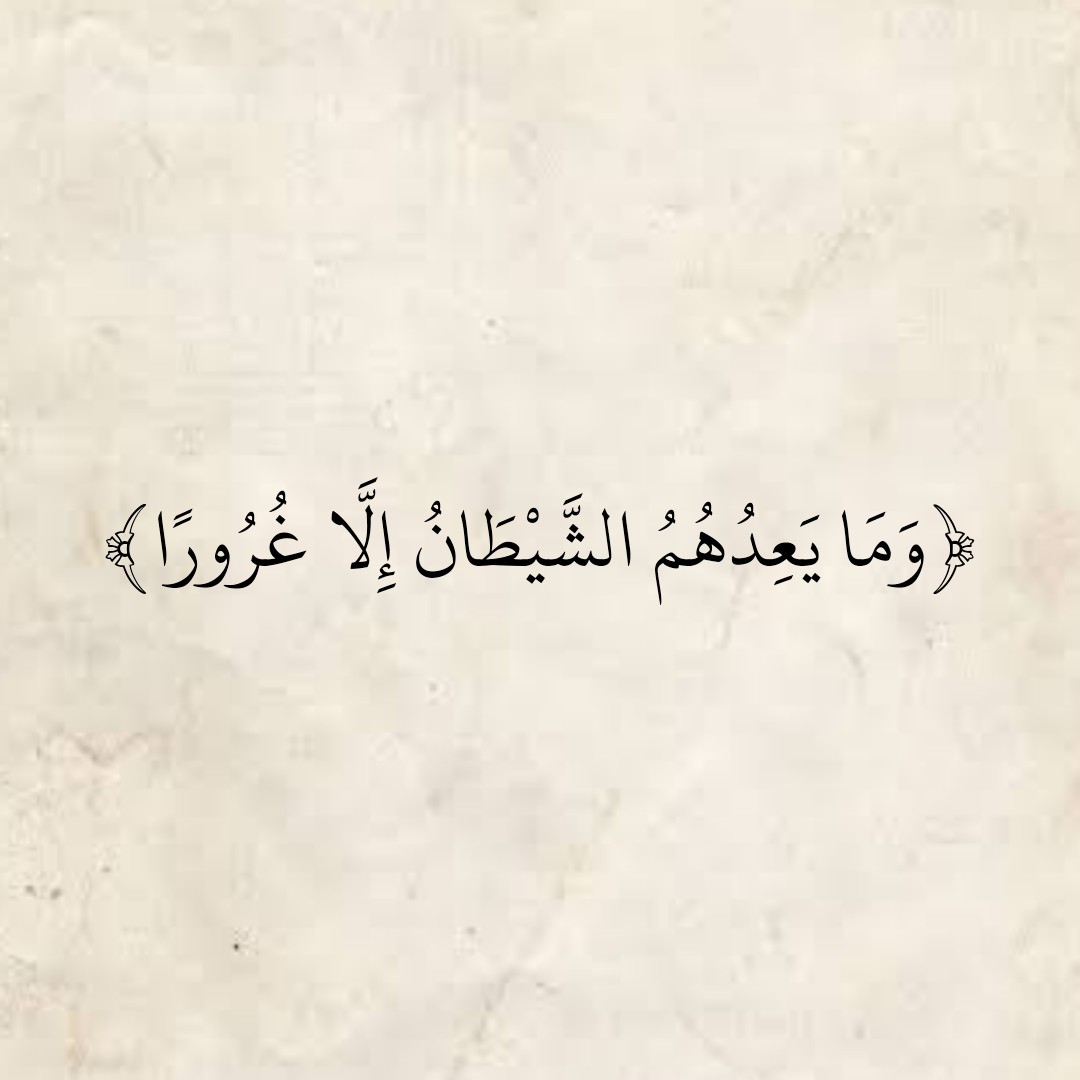 ﴿وَمَا يَعِدُهُمُ الشَّيْطَانُ إِلَّا غُرُورًا﴾